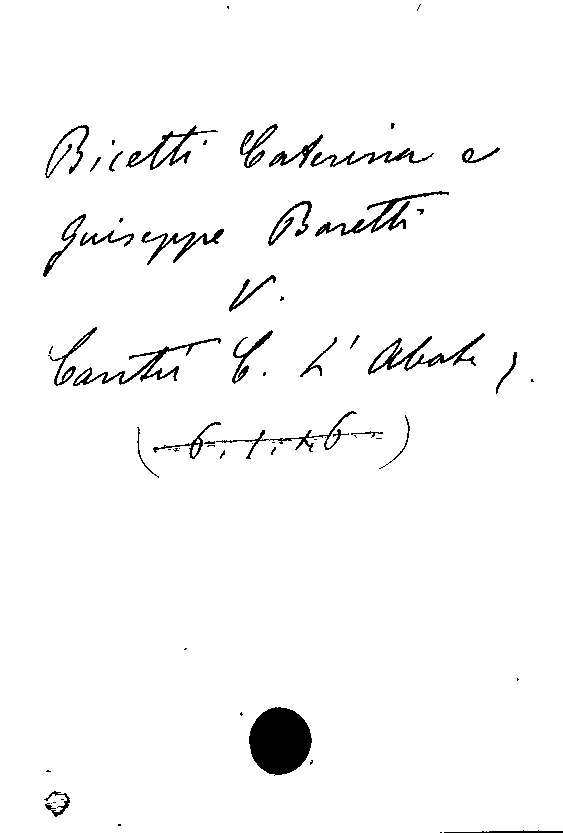 Bicetti Caterina e
Guiseppe Baretti
V.
Cantù C. L'Abate,
(6.1.46)